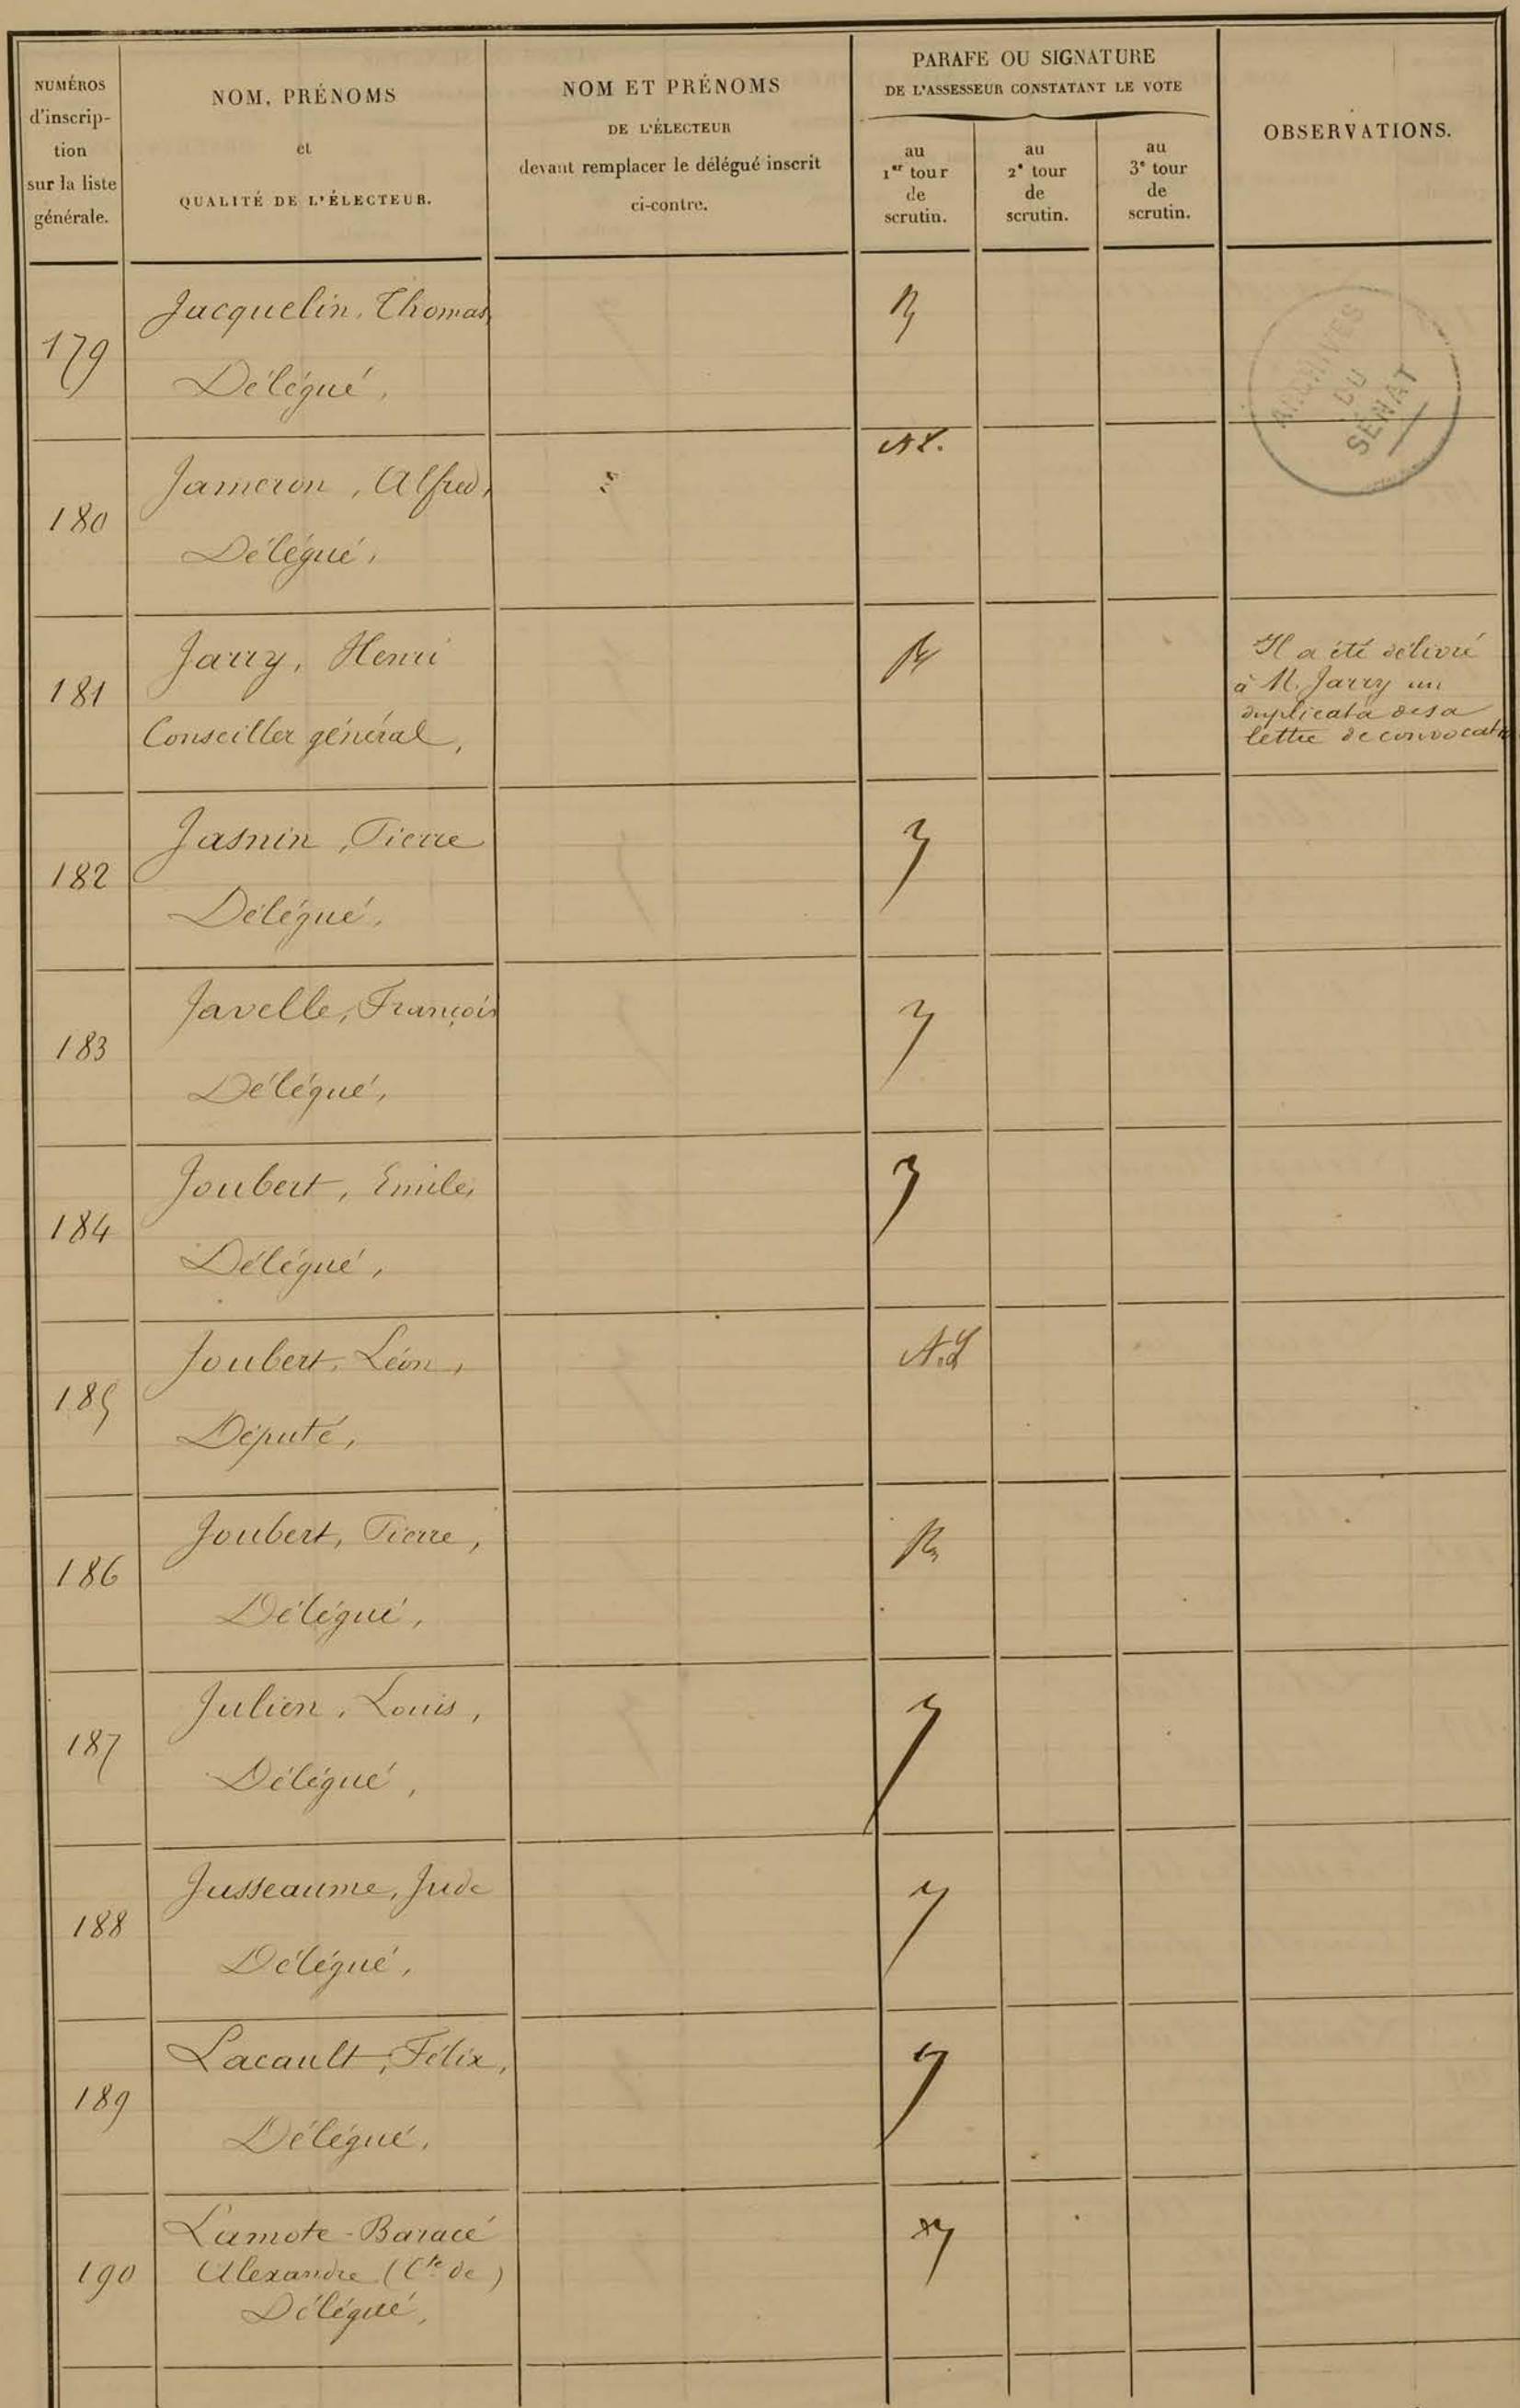 NUMÉROS
d'inscrip-
tion
sur la liste
générale.
NOM, PRÉNOMS
et
QUALITÉ DE L'ÉLECTEUR.
NOM ET PRÉNOMS
DE L'ÉLECTEUR
devant remplacer le délégué inscrit
ci-contre.
PARAFE OU SIGNATURE
DE L'ASSESSEUR CONSTATANT LE VOTE
au
1er tour
de
scrutin.
au
2e tour
de
scrutin.
au
3e tour
de
scrutin.
OBSERVATIONS.
179
Jacquelin, Thomas,
Délégué,
ARCHIVES
DU
SÉNAT
180
Jameron, Alfred,
Délégué,
181
Jarry, Henri
Conseiller général,
Il a été délivré
à M. Jarry un
duplicata de sa
lettre de convocat
182
Jasnin, Pierre
Délégué,
183
Javelle, François
Délégué,
184
Joubert, Emile,
Délégué,
185
Joubert, Léon,
Député,
186
Joubert, Pierre,
Délégué,
187
Julien, Louis,
Délégué,
188
Jusseaume, Jude
Délégué,
189
Lacault, Félix,
Délégué,
190
Lamote-Baracé
Alexandre (Cte de)
Délégué,